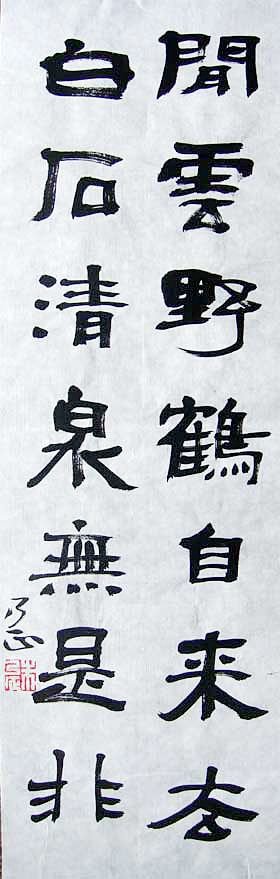 閒雲野鶴自来去
白石清泉無是非
乃正